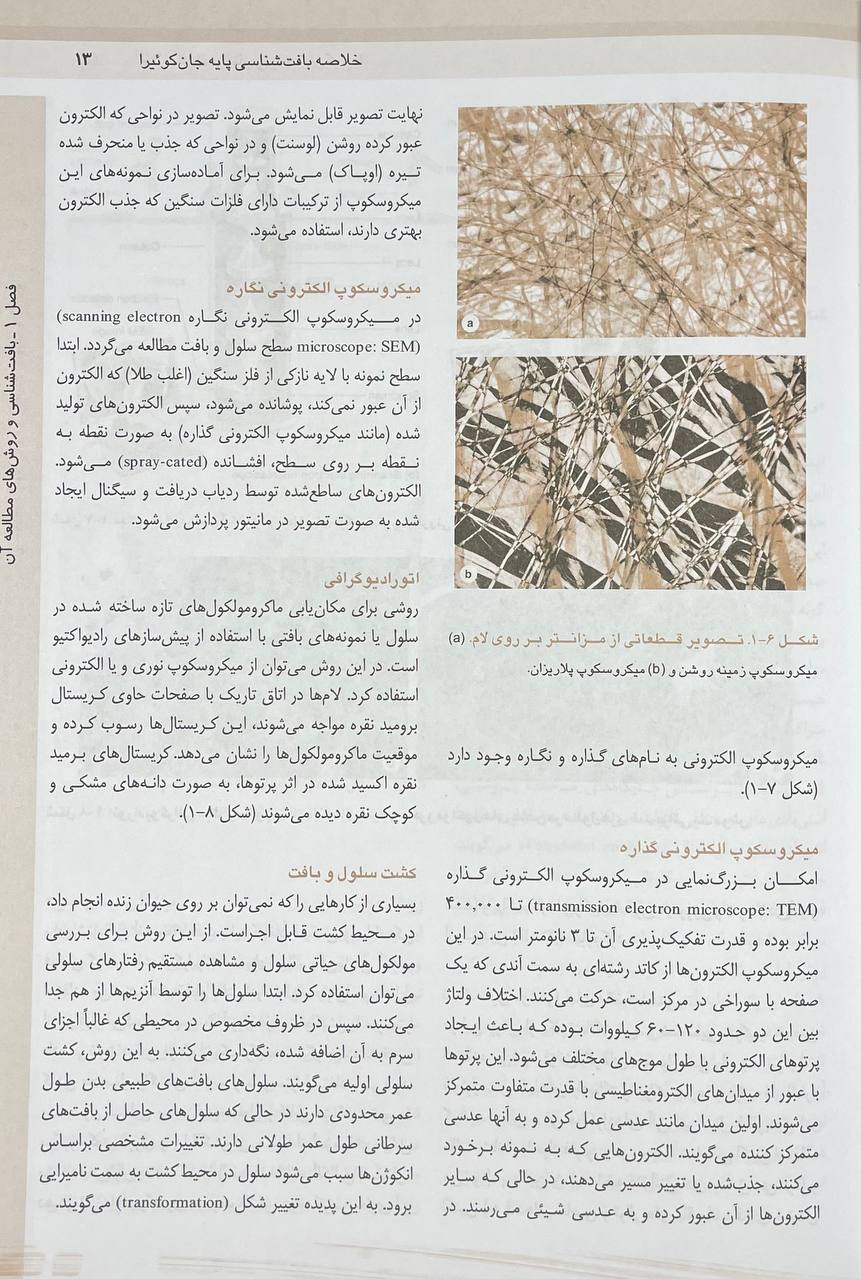 خلاصه بافت‌شناسی پایه جان‌کوئیرا ۱۳
a
b
شکل ۶-۱. تصویر قطعاتی از مزانتر بر روی لام. (a)
میکروسکوپ زمینه روشن و (b) میکروسکوپ پلاریزان.
میکروسکوپ الکترونی به نام‌های گذاره و نگاره وجود دارد
(شکل ۷-۱).
میکروسکوپ الکترونی گذاره
امکان بزرگ‌نمایی در میکروسکوپ الکترونی گذاره
(transmission electron microscope: TEM) تا ۴۰۰,۰۰۰
برابر بوده و قدرت تفکیک‌پذیری آن تا ۳ نانومتر است. در این
میکروسکوپ الکترون‌ها از کاتد رشته‌ای به سمت آندی که یک
صفحه با سوراخی در مرکز است، حرکت می‌کنند. اختلاف ولتاژ
بین این دو حدود ۱۲۰-۶۰ کیلووات بوده که باعث ایجاد
پرتوهای الکترونی با طول موج‌های مختلف می‌شود. این پرتوها
با عبور از میدان‌های الکترومغناطیسی با قدرت متفاوت متمرکز
می‌شوند. اولین میدان مانند عدسی عمل کرده و به آنها عدسی
متمرکز کننده می‌گویند. الکترون‌هایی که به نمونه برخورد
می‌کنند، جذب‌شده یا تغییر مسیر می‌دهند، در حالی که سایر
الکترون‌ها از آن عبور کرده و به عدسی شیئی می‌رسند. در
نهایت تصویر قابل نمایش می‌شود. تصویر در نواحی که الکترون
عبور کرده روشن (لوسنت) و در نواحی که جذب یا منحرف شده
تیره (اوپاک) می‌شود. برای آماده‌سازی نمونه‌های این
میکروسکوپ از ترکیبات دارای فلزات سنگین که جذب الکترون
بهتری دارند، استفاده می‌شود.
میکروسکوپ الکترونی نگاره
در میکروسکوپ الکترونی نگاره (scanning electron
microscope: SEM) سطح سلول و بافت مطالعه می‌گردد. ابتدا
سطح نمونه با لایه نازکی از فلز سنگین (اغلب طلا) که الکترون
از آن عبور نمی‌کند، پوشانده می‌شود، سپس الکترون‌های تولید
شده (مانند میکروسکوپ الکترونی گذاره) به صورت نقطه به
نقطه بر روی سطح، افشانده (spray-cated) می‌شود.
الکترون‌های ساطع‌شده توسط ردیاب دریافت و سیگنال ایجاد
شده به صورت تصویر در مانیتور پردازش می‌شود.
اتورادیوگرافی
روشی برای مکان‌یابی ماکرومولکول‌های تازه ساخته شده در
سلول یا نمونه‌های بافتی با استفاده از پیش‌سازهای رادیواکتیو
است. در این روش می‌توان از میکروسکوپ نوری و یا الکترونی
استفاده کرد. لام‌ها در اتاق تاریک با صفحات حاوی کریستال
برومید نقره مواجه می‌شوند، این کریستال‌ها رسوب کرده و
موقعیت ماکرومولکول‌ها را نشان می‌دهد. کریستال‌های برمید
نقره اکسید شده در اثر پرتوها، به صورت دانه‌های مشکی و
کوچک نقره دیده می‌شوند (شکل ۸-۱).
کشت سلول و بافت
بسیاری از کارهایی را که نمی‌توان بر روی حیوان زنده انجام داد،
در محیط کشت قابل اجراست. از این روش برای بررسی
مولکول‌های حیاتی سلول و مشاهده مستقیم رفتارهای سلولی
می‌توان استفاده کرد. ابتدا سلول‌ها را توسط آنزیم‌ها از هم جدا
می‌کنند. سپس در ظروف مخصوص در محیطی که غالباً اجزای
سرم به آن اضافه شده، نگه‌داری می‌کنند. به این روش، کشت
سلولی اولیه می‌گویند. سلول‌های بافت‌های طبیعی بدن طول
عمر محدودی دارند در حالی که سلول‌های حاصل از بافت‌های
سرطانی طول عمر طولانی دارند. تغییرات مشخصی براساس
انکوژن‌ها سبب می‌شود سلول در محیط کشت به سمت نامیرایی
برود. به این پدیده تغییر شکل (transformation) می‌گویند.
فصل ۱-بافت‌شناسی و روش‌های مطالعه آن